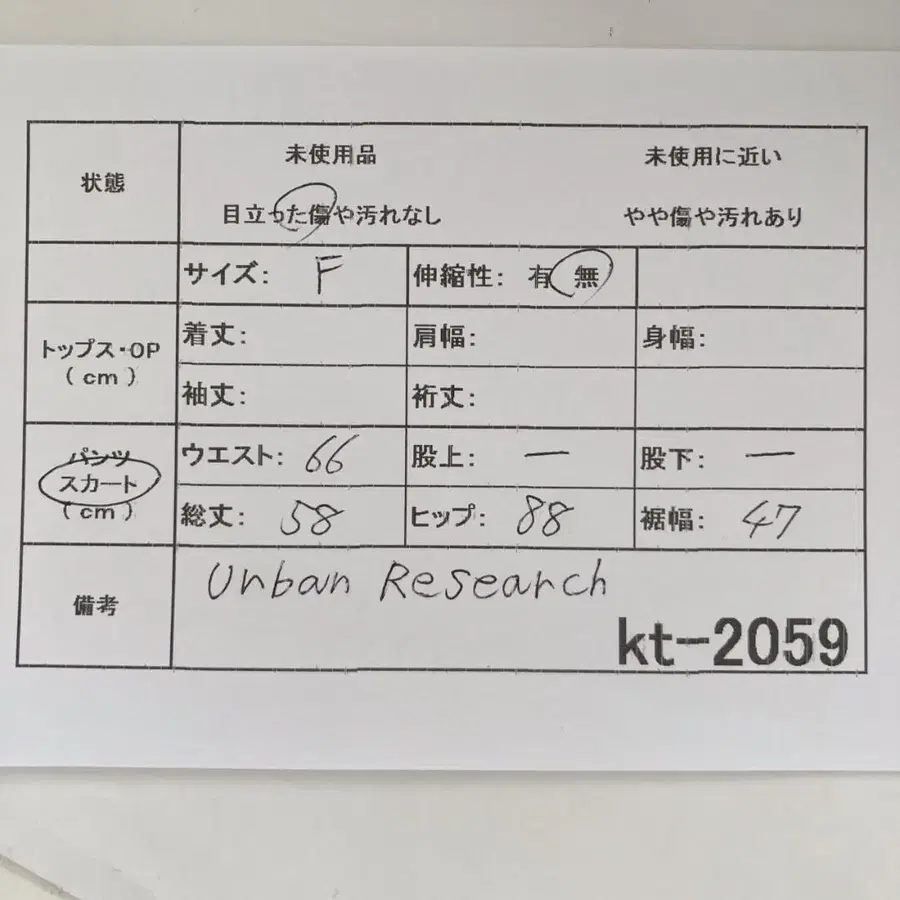 状態
未使用品 未使用に近い
目立った傷や汚れなし やや傷や汚れあり
サイズ: F 伸縮性: 有 無
トップス・OP
(cm)
着丈: 肩幅: 身幅:
袖丈: 裄丈:
パンツ
スカート
(cm)
ウエスト: 66 股上: ー 股下: ー
総丈: 58 ヒップ: 88 裾幅: 47
備考
Urban Research
kt-2059